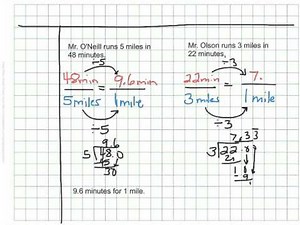 Mr. O'Neill runs 5 miles in
48 minutes.
÷5
48min = 9.6min
5miles 1mile
÷5
9.6
5 48.0
45
30
9.6 minutes for 1 mile.
Mr. Olson runs 3 miles in
22 minutes,
÷3
22min = 7.
3miles 1mile
÷3
7.33
3 22
21
1
9